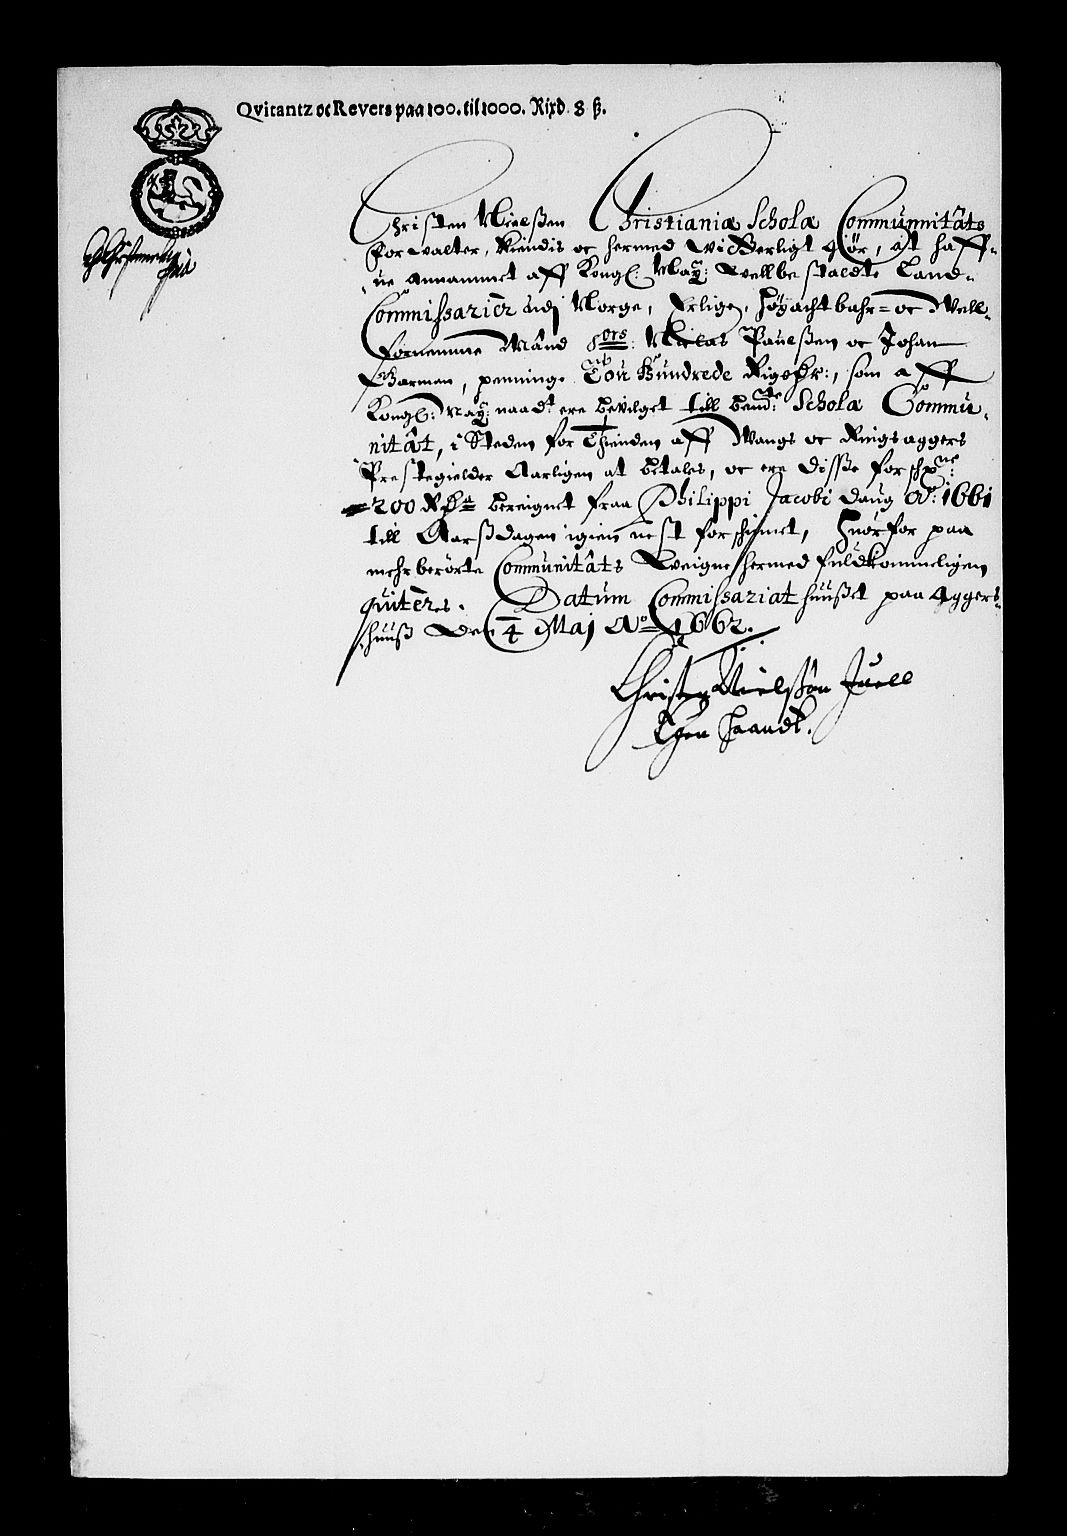 Qvitantz oc Revers paa 100. til 1000. Rixd. 8 ß.
Christen Nielßen Christianiæ Scholæ Communitâts
Forwalter, Kiendis oc hermed widerligt giör, at haff-
ue Annammet aff Kongl: May: Wellbestaldte Land-
Commissarier udj Norge, Erlige, Höyachtbahr= oc Well-
fornemme Mänd Sors: Niclas Pauelßen oc Johan
Garman, penninge Tou Hundrede Rigsdr:, som aff
Kongl: May: naadt ere bevilget till bemte: Scholæ Commu-
nitât, i Steden for Tienden aff Wangs oc Ringsaggers
Prestegielder Aarligen at betales, oc ere disße forschrne:
200 Rdr bereignet fraa Philippi Jacobi daug Ao: 1661
till Aarßdagen igien nest forschinet, Huorfor paa
mehrberörte Communitâts Weigne hermed fuldkommeligen
quiteres. Datum Commissariathuußet paa Aggers-
huuß Den 4 Maj Ao 1662.
Christen Nielßön Juell
Egen Haandt.